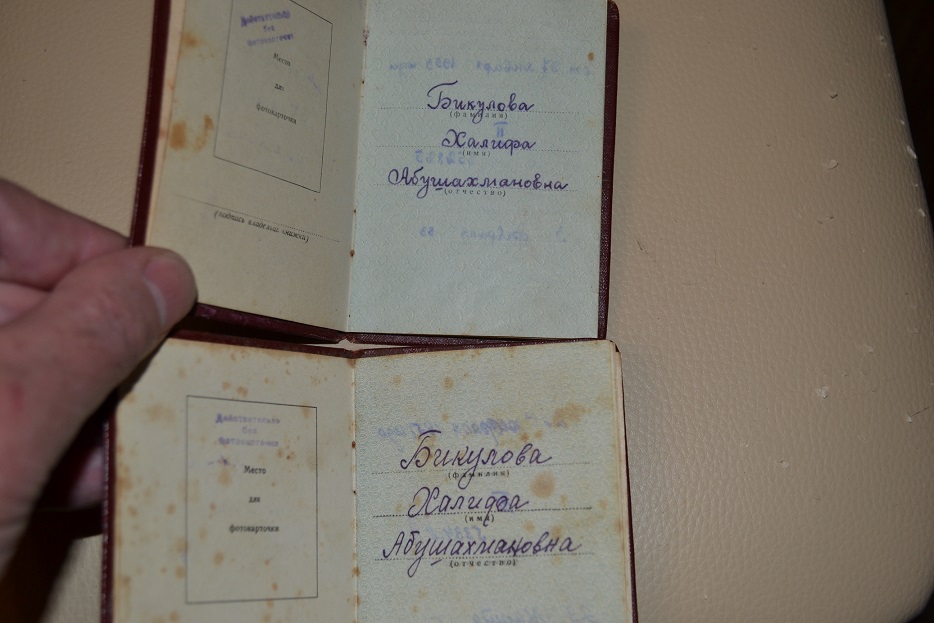 Действительно
без
фотокарточки
Место
для
фотокарточки
(подпись владельца книжки)
Бикулова
(фамилия)
Халифа
(имя)
Абушахмановна
(отчество)
Действительно
без
фотокарточки
Место
для
фотокарточки
Бикулова
(фамилия)
Халифа
(имя)
Абушахмановна
(отчество)